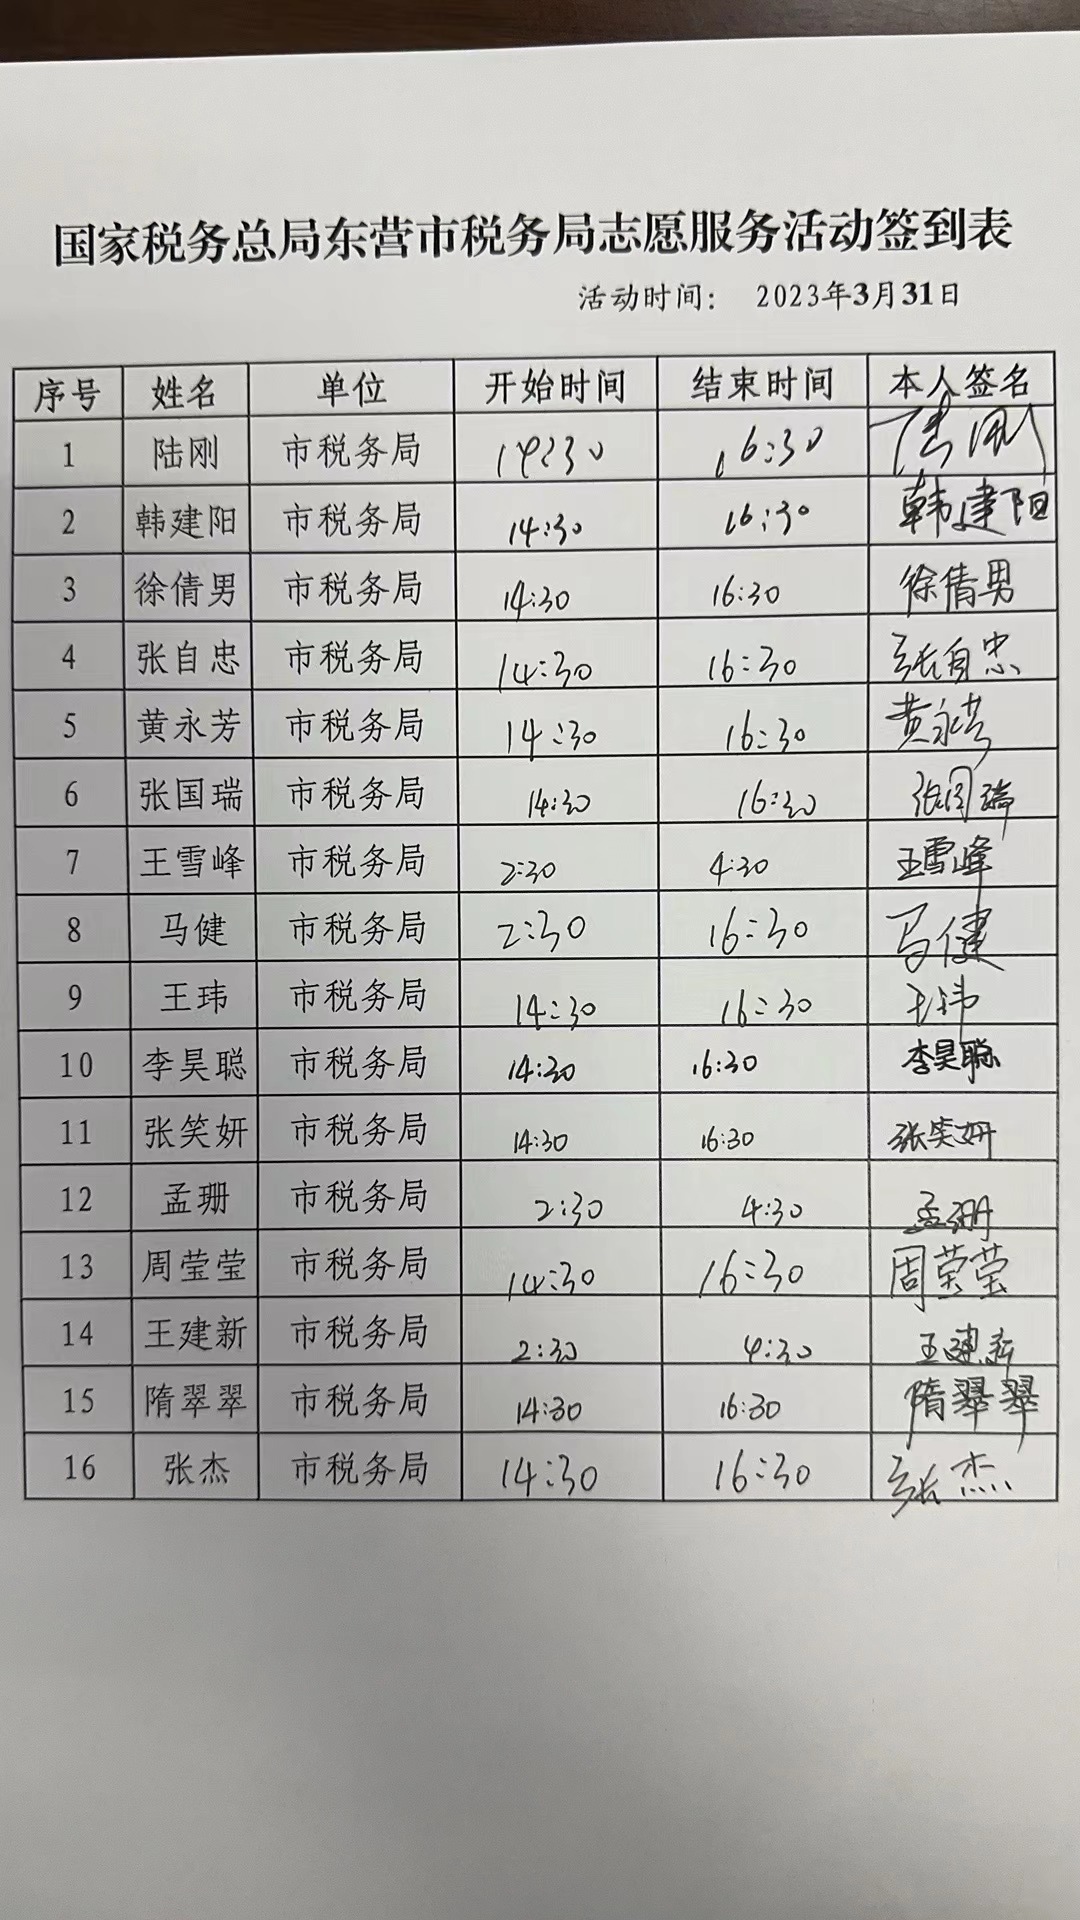 国家税务总局东营市税务局志愿服务活动签到表
活动时间： 2023年3月31日
序号 姓名 单位 开始时间 结束时间 本人签名
1 陆刚 市税务局 14:30 16:30 陆刚
2 韩建阳 市税务局 14:30 16:30 韩建阳
3 徐倩男 市税务局 14:30 16:30 徐倩男
4 张自忠 市税务局 14:30 16:30 张自忠
5 黄永芳 市税务局 14:30 16:30 黄永芳
6 张国瑞 市税务局 14:30 16:30 张国瑞
7 王雪峰 市税务局 2:30 4:30 王雪峰
8 马健 市税务局 2:30 16:30 马健
9 王玮 市税务局 14:30 16:30 王玮
10 李昊聪 市税务局 14:30 16:30 李昊聪
11 张笑妍 市税务局 14:30 16:30 张笑妍
12 孟珊 市税务局 2:30 4:30 孟珊
13 周莹莹 市税务局 14:30 16:30 周莹莹
14 王建新 市税务局 2:30 4:30 王建新
15 隋翠翠 市税务局 14:30 16:30 隋翠翠
16 张杰 市税务局 14:30 16:30 张杰